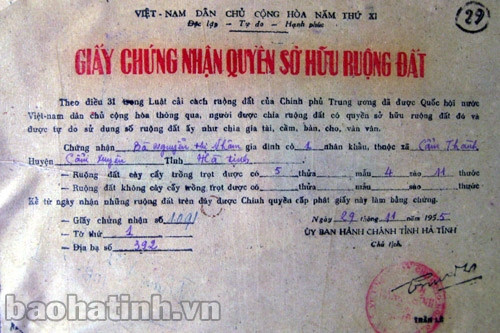 VIỆT-NAM DÂN CHỦ CỘNG HÒA NĂM THỨ XI
Độc lập — Tự do — Hạnh phúc
29
GIẤY CHỨNG NHẬN QUYỀN SỞ HỮU RUỘNG ĐẤT
Theo điều 31 trong Luật cải cách ruộng đất của Chính phủ Trung ương đã được Quốc hội nước
Việt-nam dân chủ cộng hòa thông qua, người được chia ruộng đất có quyền sở hữu ruộng đất đó và
được tự do sử dụng số ruộng đất ấy như chia gia tài, cầm, bán, cho, vân vân.
Chứng nhận Bà Nguyễn thị gia đình có 1 nhân khẩu, thuộc xã Cẩm Thành
Huyện Cẩm Xuyên Tỉnh Hà Tịnh
— Ruộng đất cày cấy trồng trọt được có 5 thửa mẫu 4 sào 11 thước
— Ruộng đất không cày cấy trồng trọt được có thửa mẫu sào thước
Kể từ ngày nhận những ruộng đất trên đây được Chính quyền cấp phát giấy này làm bằng chứng.
— Giấy chứng nhận số 1091
Ngày 29 tháng 11 năm 1955
— Tờ thứ 1
ỦY BAN HÀNH CHÁNH TỈNH HÀ TĨNH
— Địa bạ số 392
Chủ tịch
TRẦN LÊ
baohatinh.vn